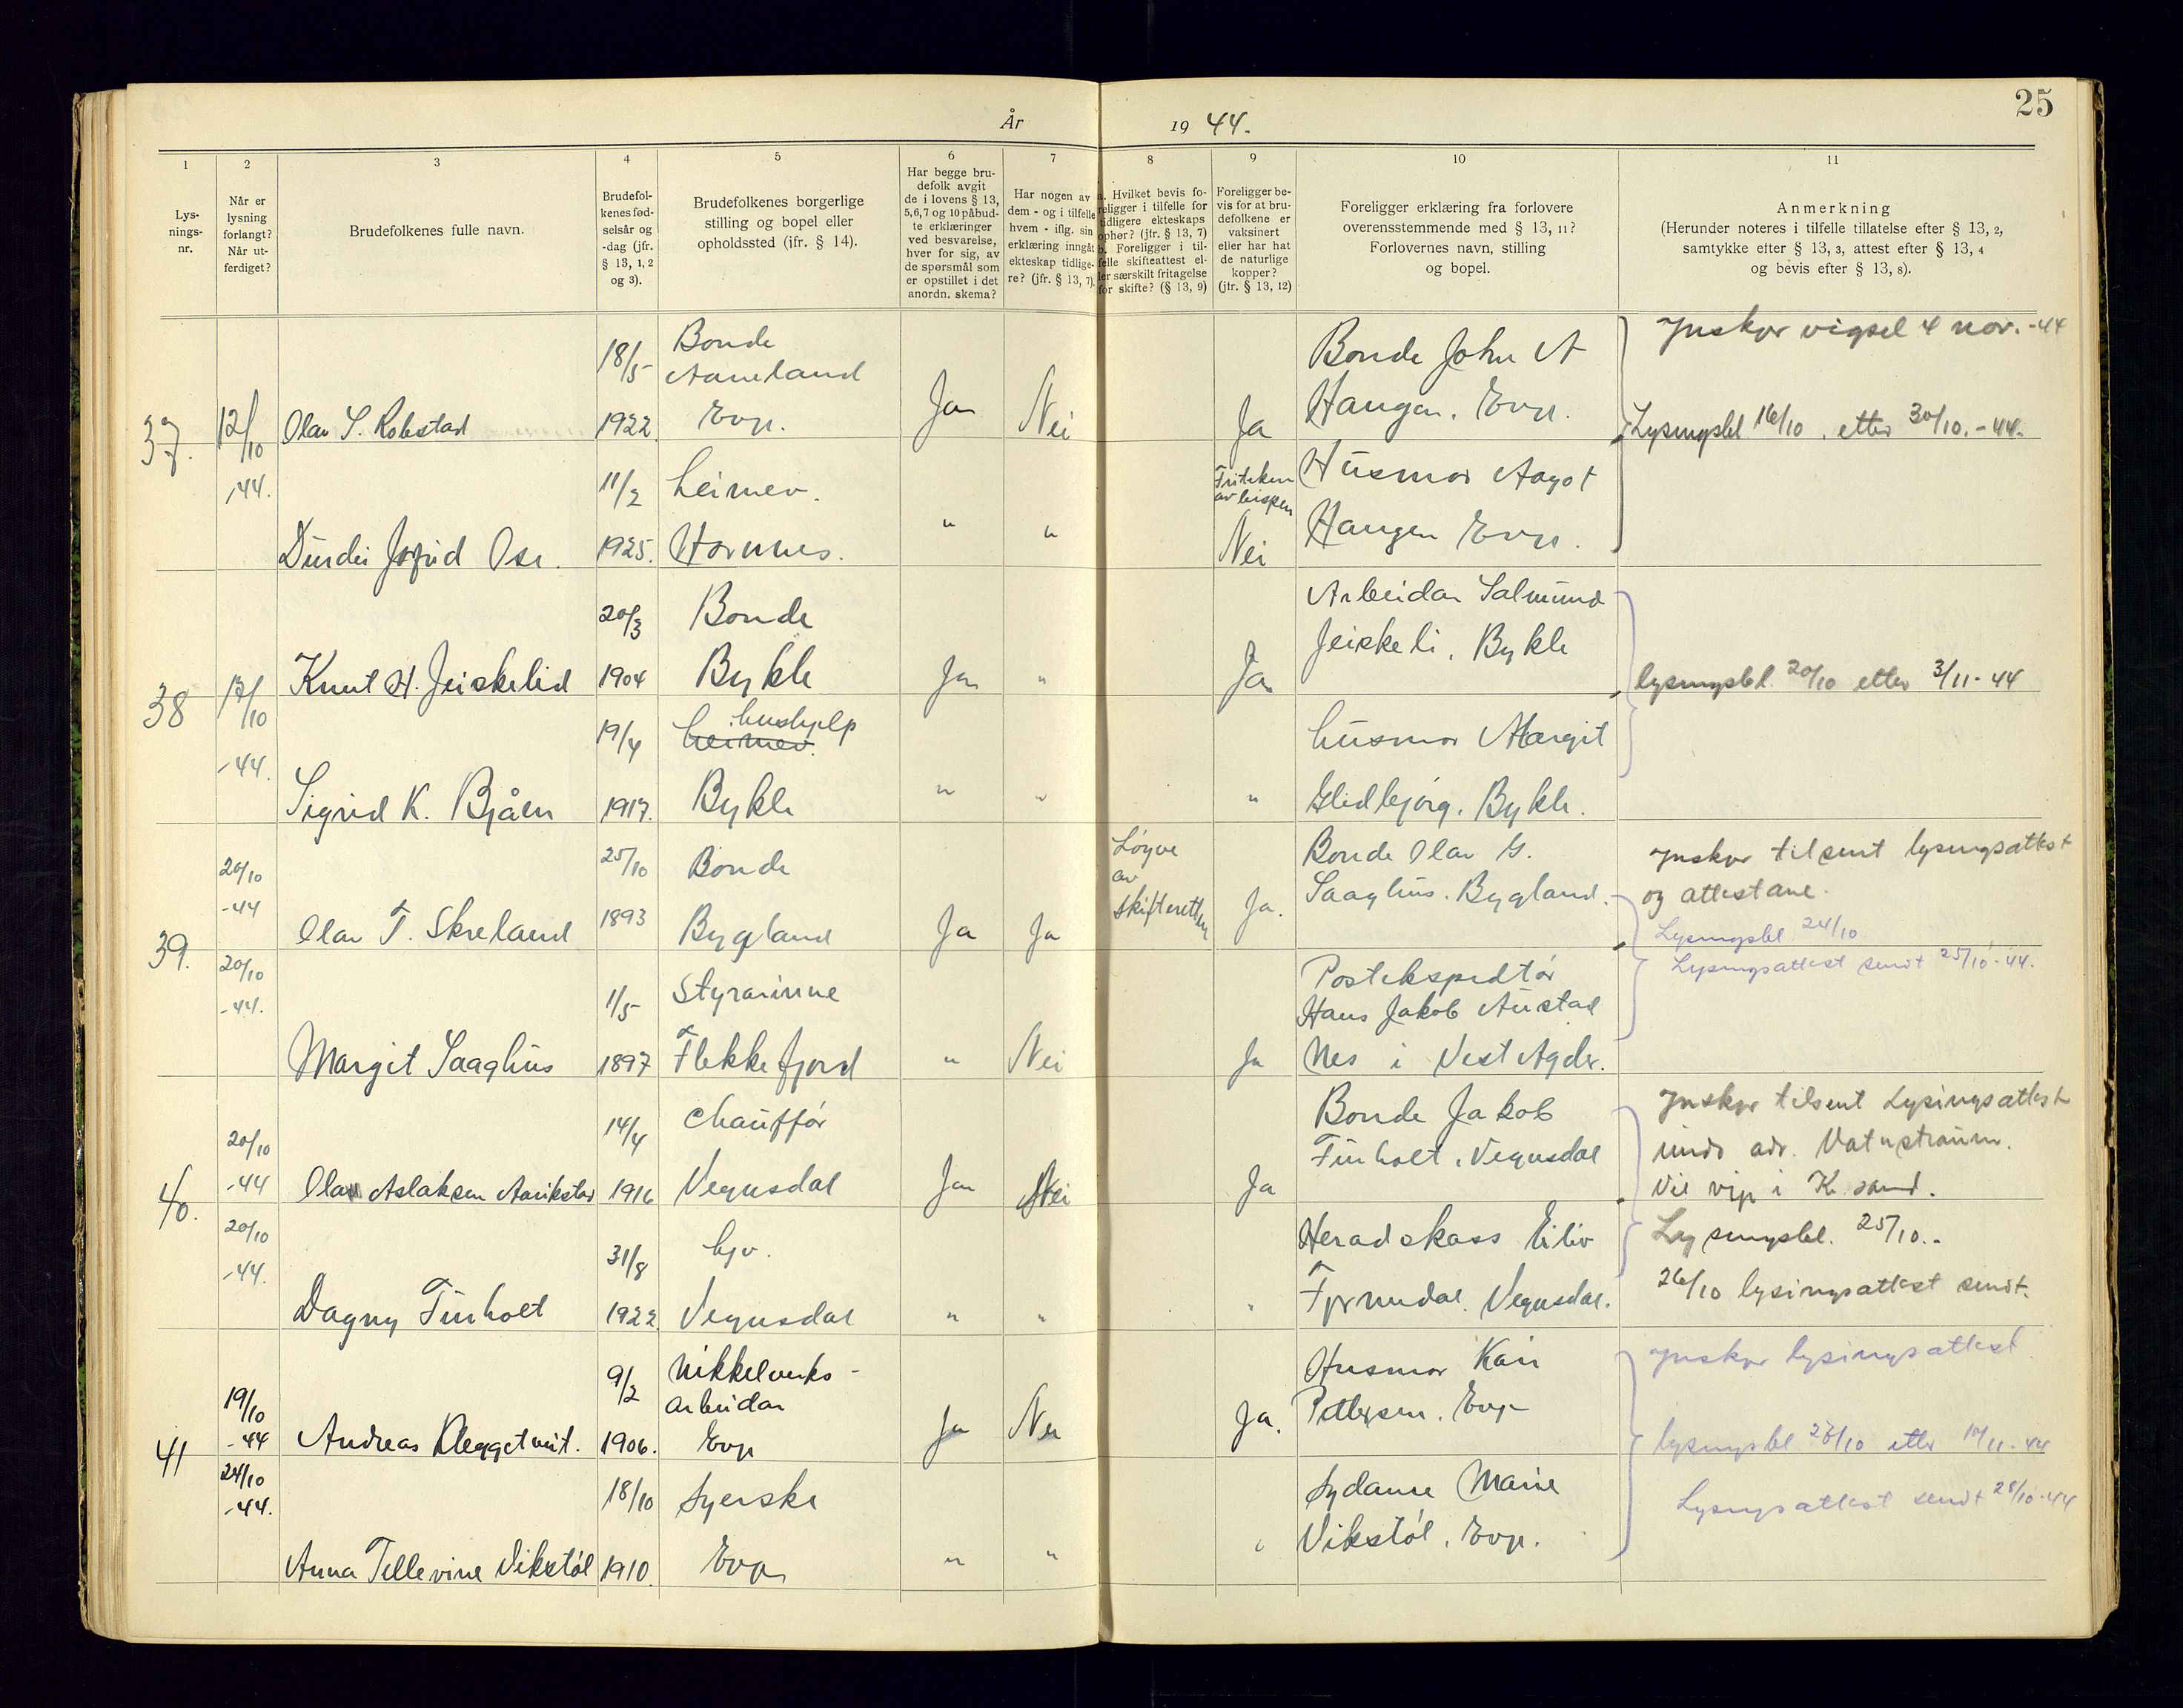 25
År 1944.
1 2 3 4 5 6 7 8 9 10 11
Lys-
nings-
nr.
Når er
lysning
forlangt?
Når ut-
ferdiget?
Brudefolkenes fulle navn.
Brudefol-
kenes fød-
selsår og
-dag (jfr.
§ 13, 1, 2
og 3).
Brudefolkenes borgerlige
stilling og bopel eller
opholdssted (jfr. § 14).
Har begge bru-
defolk avgit
de i lovens § 13,
5, 6, 7 og 10 påbud-
te erklæringer
ved besvarelse,
hver for sig, av
de spørsmål som
er opstillet i det
anordn. skema?
Har nogen av
dem - og i tilfelle
hvem - iflg. sin
erklæring inngåt
ekteskap tidlige-
re? (jfr. § 13, 7).
a. Hvilket bevis fo-
religger i tilfelle for
tidligere ekteskaps
ophør? (jfr. § 13, 7)
b. Foreligger i til-
felle skifteattest el-
ler særskilt fritagelse
for skifte? (§ 13, 9)
Foreligger be-
vis for at bru-
defolkene er
vaksinert
eller har hat
de naturlige
kopper?
(jfr. § 13, 12)
Foreligger erklæring fra forlovere
overensstemmende med § 13, 11?
Forlovernes navn, stilling
og bopel.
Anmerkning
(Herunder noteres i tilfelle tillatelse efter § 13, 2,
samtykke efter § 13, 3, attest efter § 13, 4
og bevis efter § 13, 8).
37.
12/10
-44.
Olav S. Robstad
18/5
1922.
Bonde
Aaneland
Evje.
Ja
Nei
Ja
Bonde John A
Haugen. Evje.
Ynskjer vigsel 4 nov. -44
Lysingsbl 16/10. etter 30/10. -44.
Durdei Jofrid Ose.
11/2
1925.
heimev.
Hornnes.
"
"
Friteken
av bispen
Nei
Husmor Aagot
Haugen Evje.
38
17/10
-44.
Knut H. Jeiskelid
20/3
1904
Bonde
Bykle
Ja
"
Ja
Arbeidar Salmund
Jeiskeli. Bykle
lysingsbl. 20/10 etter 3/11-44
Sigrid K. Bjåen
19/4
1917.
hushjelp
heimev.
Bykle
"
"
"
husmor Margit
Glidbjørg. Bykle.
39.
20/10
-44
Olav T. Skreland
25/10
1893
Bonde
Bygland
Ja
Ja
Løyve
av
skifteretten
Ja.
Bonde Olav G.
Saaghus. Bygland.
Ynskjer tilsent lysingsattest
og attestane.
Lysingsbl. 24/10
Lysingsattest sendt 25/10-44.
20/10
-44.
Margit Saaghus
1/5
1897
Styrarinne
Flekkefjord
"
Nei
Ja
Postekspedtør
Hans Jakob Austad
Nes i Vest Agder.
40.
20/10
-44
Olav Aslaksen Aarikstad
14/4
1916
Chauffør
Vegusdal
Ja
Nei
Ja
Bonde Jakob
Furholt. Vegusdal
Ynskjer tilsent Lysingsattest
unde adr. Vatnstraum.
Vil vige i K. sand.
20/10
-44.
Dagny Furholt
31/8
1922.
hjv.
Vegusdal
"
"
"
Heradskass Eiliv
Fjermedal. Vegusdal.
Lysingsbl. 25/10..
26/10 lysingsattest sendt.
41
19/10
-44
Andreas Kleggetveit.
9/2
1906.
Nikkelverks-
arbeidar
Evje
Ja
Nei
Ja.
Husmor Kari
Pettersen. Evje
Ynskjer lysingsattest.
lysingsbl 28/10 etter 10/11-44
24/10
-44.
Anna Tellevine Vikstøl
18/10
1910.
Syerske
Evje
"
"
"
Sydame Marie
Vikstøl. Evje.
Lysingsattest sendt 28/10-44